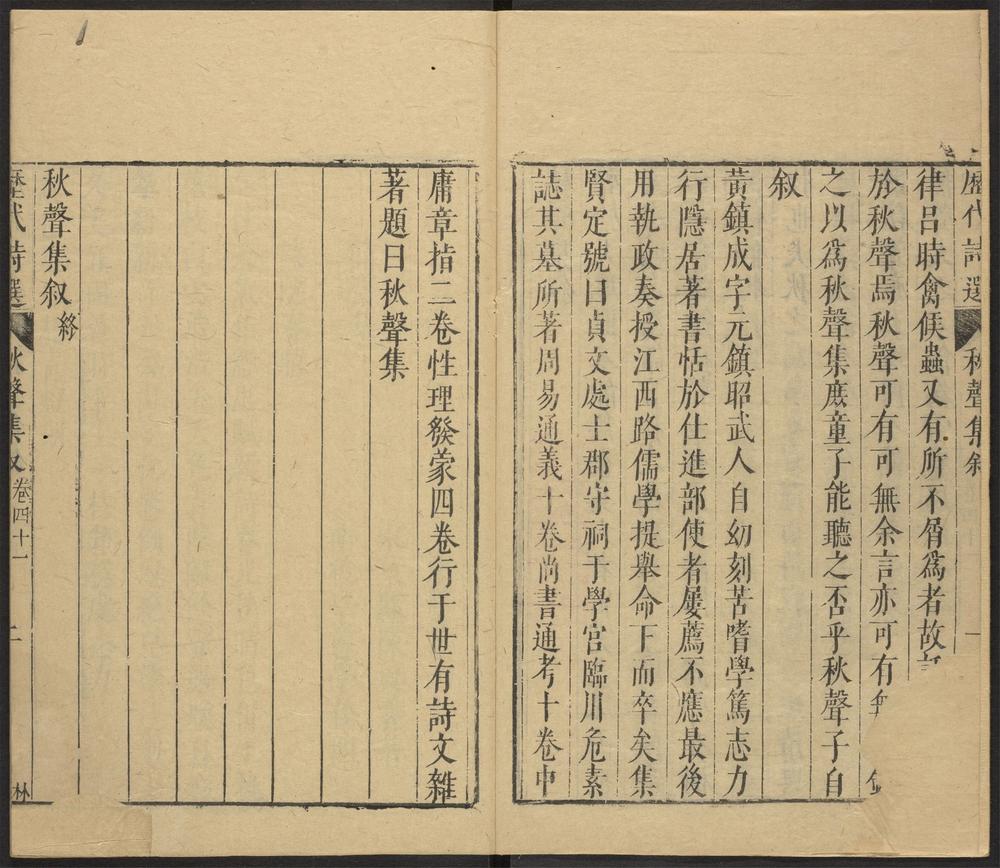 歷代詩選 秋聲集叙 一
律呂時禽候蟲又有所不屑為者故
於秋聲焉秋聲可有可無余言亦可有
之以為秋聲集庶童子能聽之否乎秋聲子自
叙
黃鎮成字元鎮昭武人自幼刻苦嗜學篤志力
行隱居著書恬於仕進部使者屢薦不應最後
用執政奏授江西路儒學提舉命下而卒矣集
賢定號曰貞文處士郡守祠于學宮臨川危素
誌其墓所著周易通義十卷尚書通考十卷中
庸章指二卷性理發蒙四卷行于世有詩文雜
著題曰秋聲集
秋聲集叙 終
歷代詩選 秋聲集叙 卷四十一 二 林